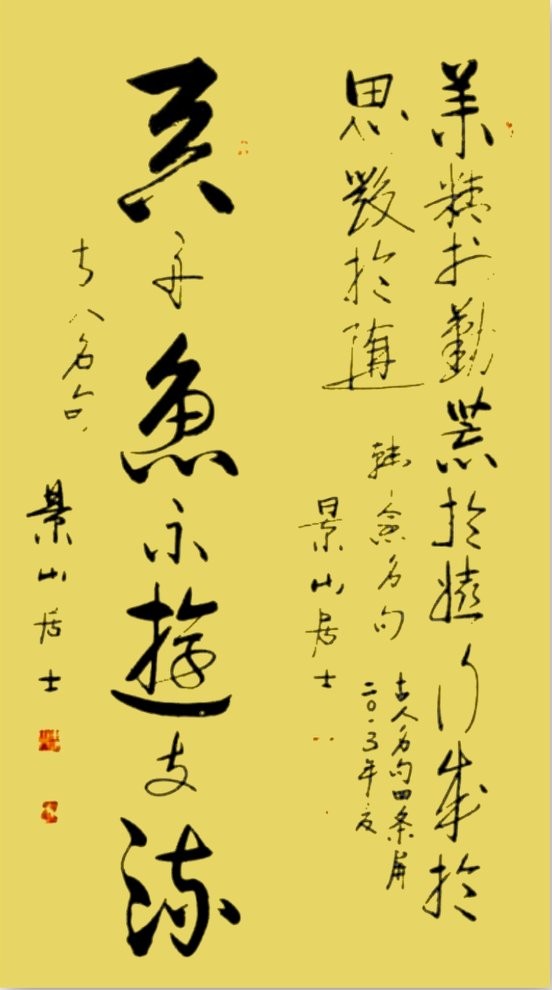 業精於勤荒於嬉行成於
思毀於隨
韓愈名句
古人名句四条屏
二〇一三年夏
景山居士
吞舟魚不遊支流
古人名句
景山居士